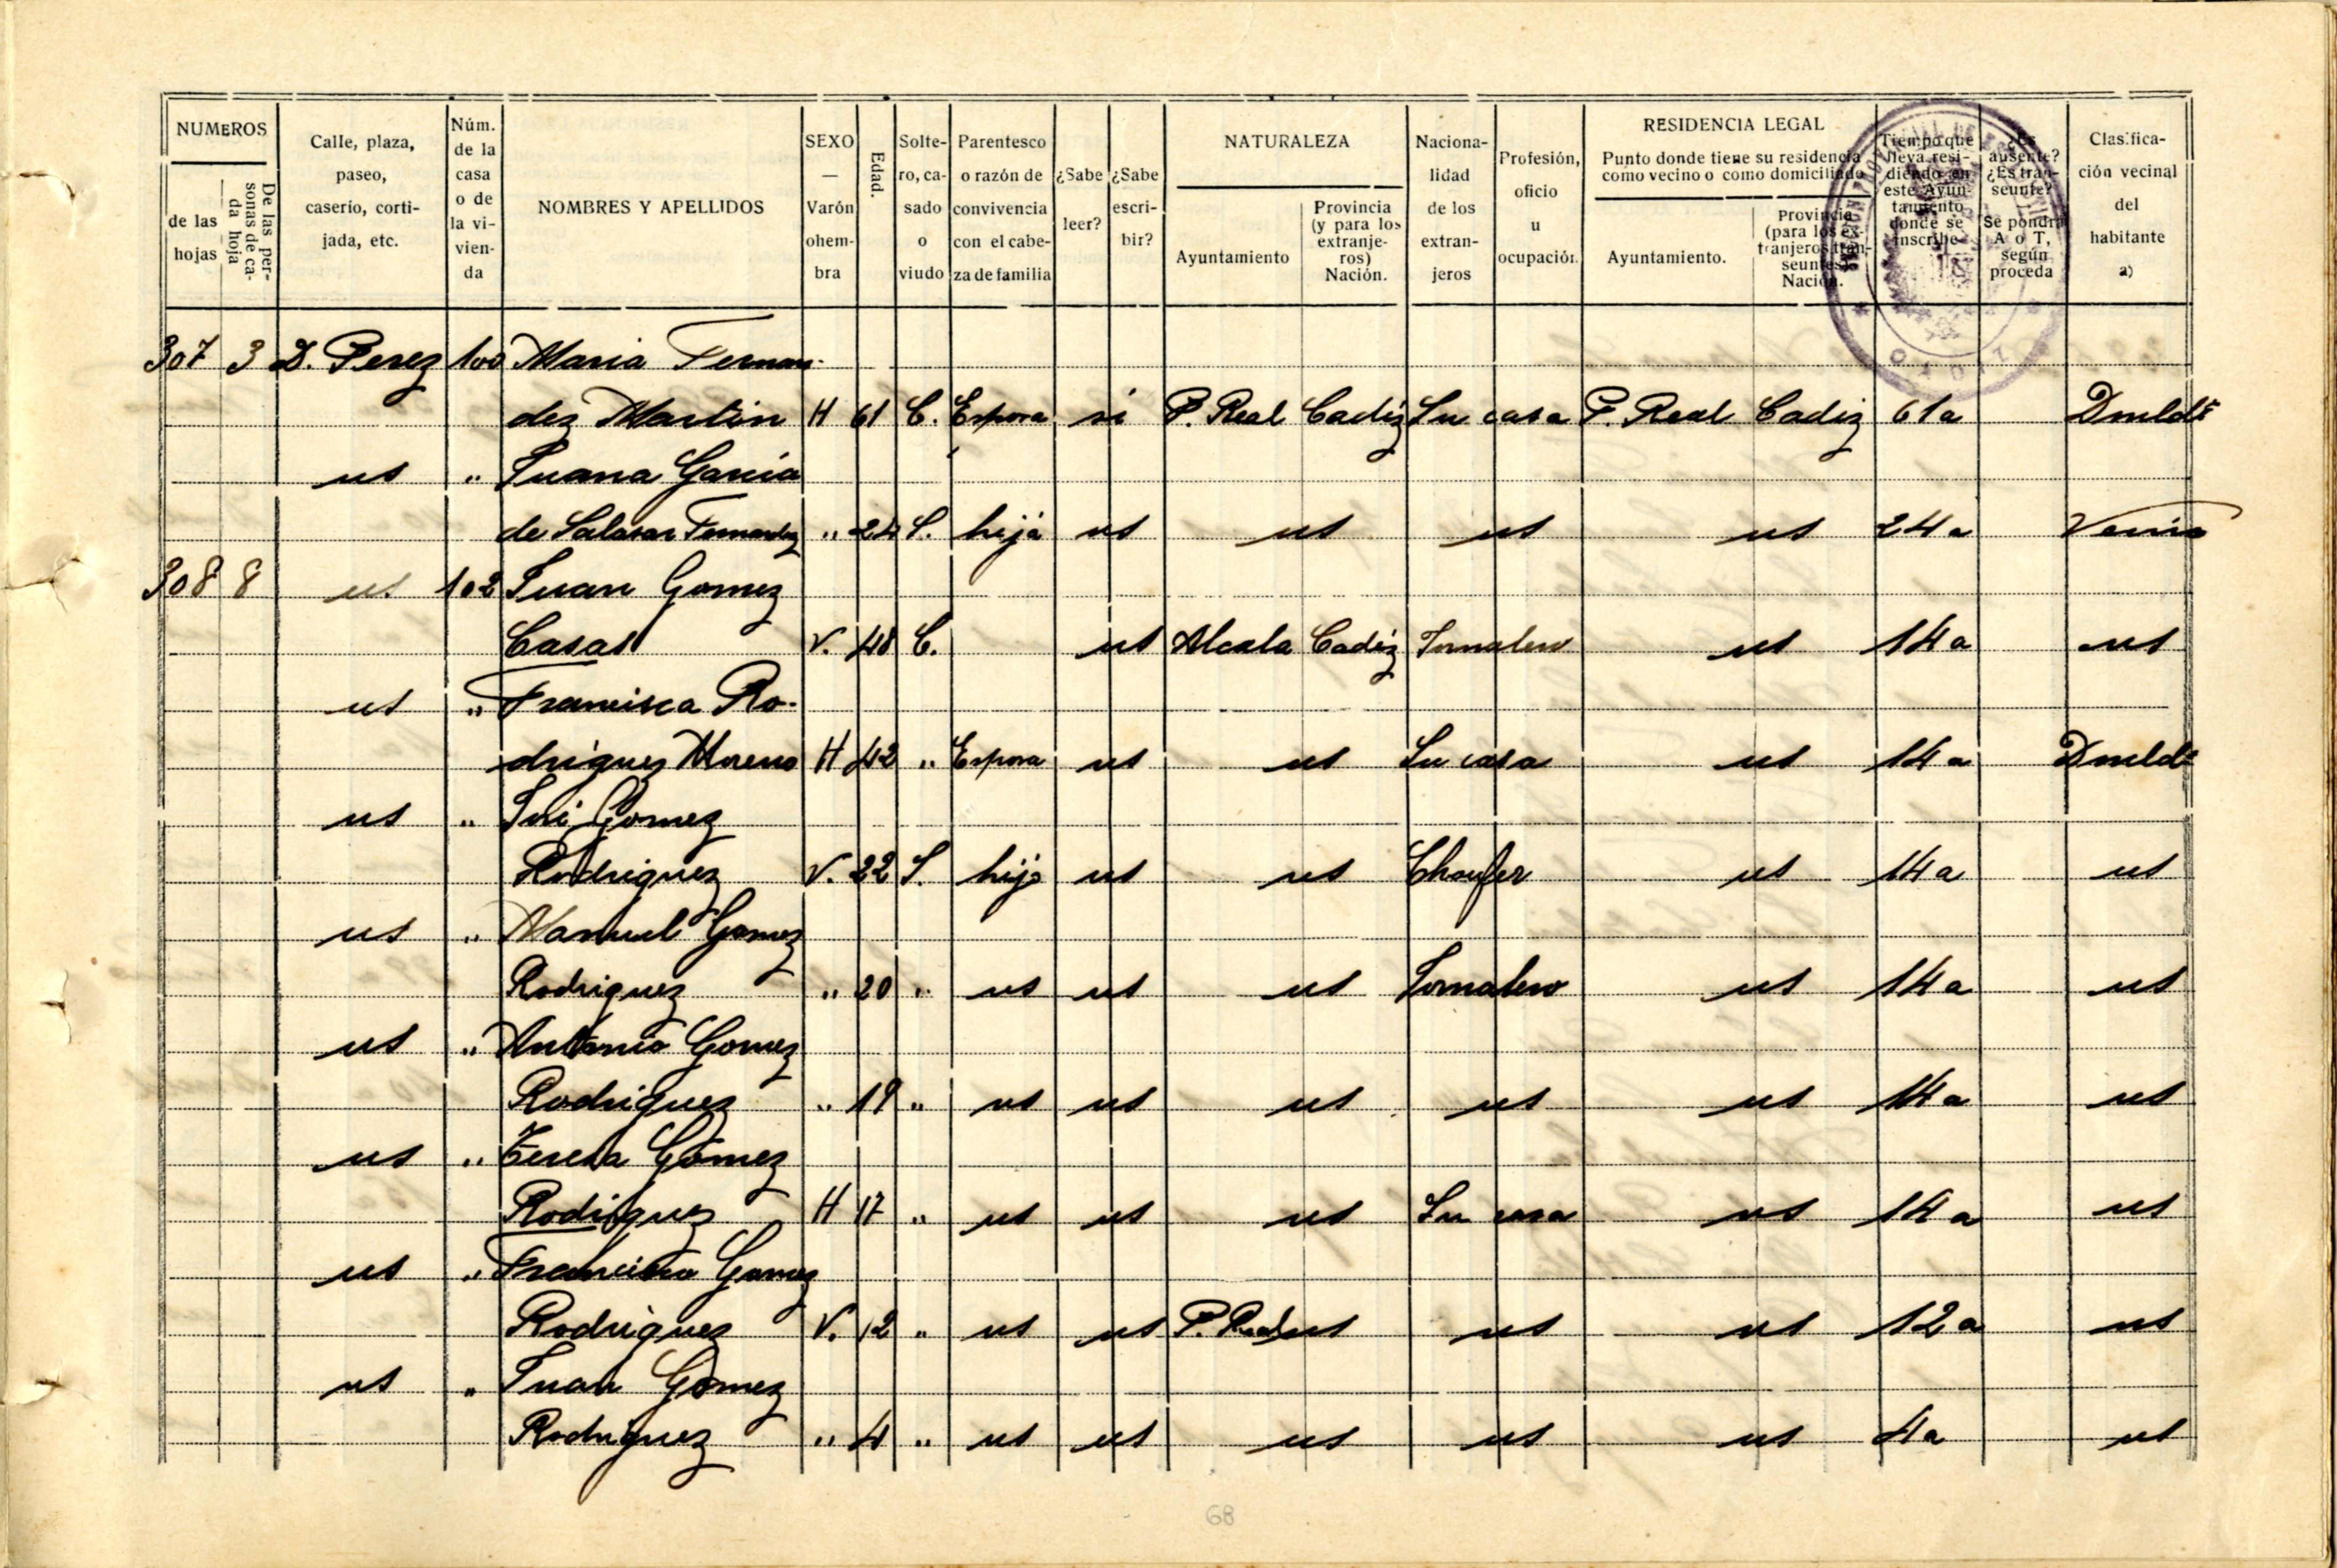 NUMEROS
de las hojas
De las personas de cada hoja
Calle, plaza, paseo, caserío, cortijada, etc.
Núm. de la casa o de la vivienda
NOMBRES Y APELLIDOS
SEXO — Varón o hembra
Edad.
Soltero, casado o viudo
Parentesco o razón de convivencia con el cabeza de familia
¿Sabe leer?
¿Sabe escribir?
NATURALEZA
Ayuntamiento
Provincia (y para los extranjeros) Nación.
Nacionalidad de los extranjeros
Profesión, oficio u ocupación.
RESIDENCIA LEGAL
Punto donde tiene su residencia como vecino o como domiciliado
Ayuntamiento.
Provincia (para los extranjeros transeuntes) Nación.
Tiempo que lleva residiendo en este Ayuntamiento donde se inscribe
¿Es ausente? ¿Es transeunte? Se pondrá A o T, según proceda
Clasificación vecinal del habitante a)
307 3 D. Perez 100 Maria Fernan-
dez Martin H 61 C. Esposa si P. Real Cadiz Su casa P. Real Cadiz 61a
us " Juana Garcia
de Salazar Fernandez " 24 S. hija us us us us 24a
308 8 us 102 Juan Gomez
Casas V. 48 C. us Alcala Cadiz Jornalero us 14a us
us " Francisca Ro-
driguez Moreno H 42 " Esposa us us Su casa us 14a
us " José Gomez
Rodriguez V. 22 S. hijo us us Chaufer us 14a us
us " Manuel Gomez
Rodriguez " 20 " us us us Jornalero us 14a us
us " Antonio Gomez
Rodriguez " 19 " us us us us us 14a us
us " Teresa Gomez
Rodriguez H 17 " us us us Su casa us 14a us
us " Francisco Gomez
Rodriguez V. 12 " us us P. Real us us us 12a us
us " Juan Gomez
Rodriguez " 4 " us us us us us 4a us
68